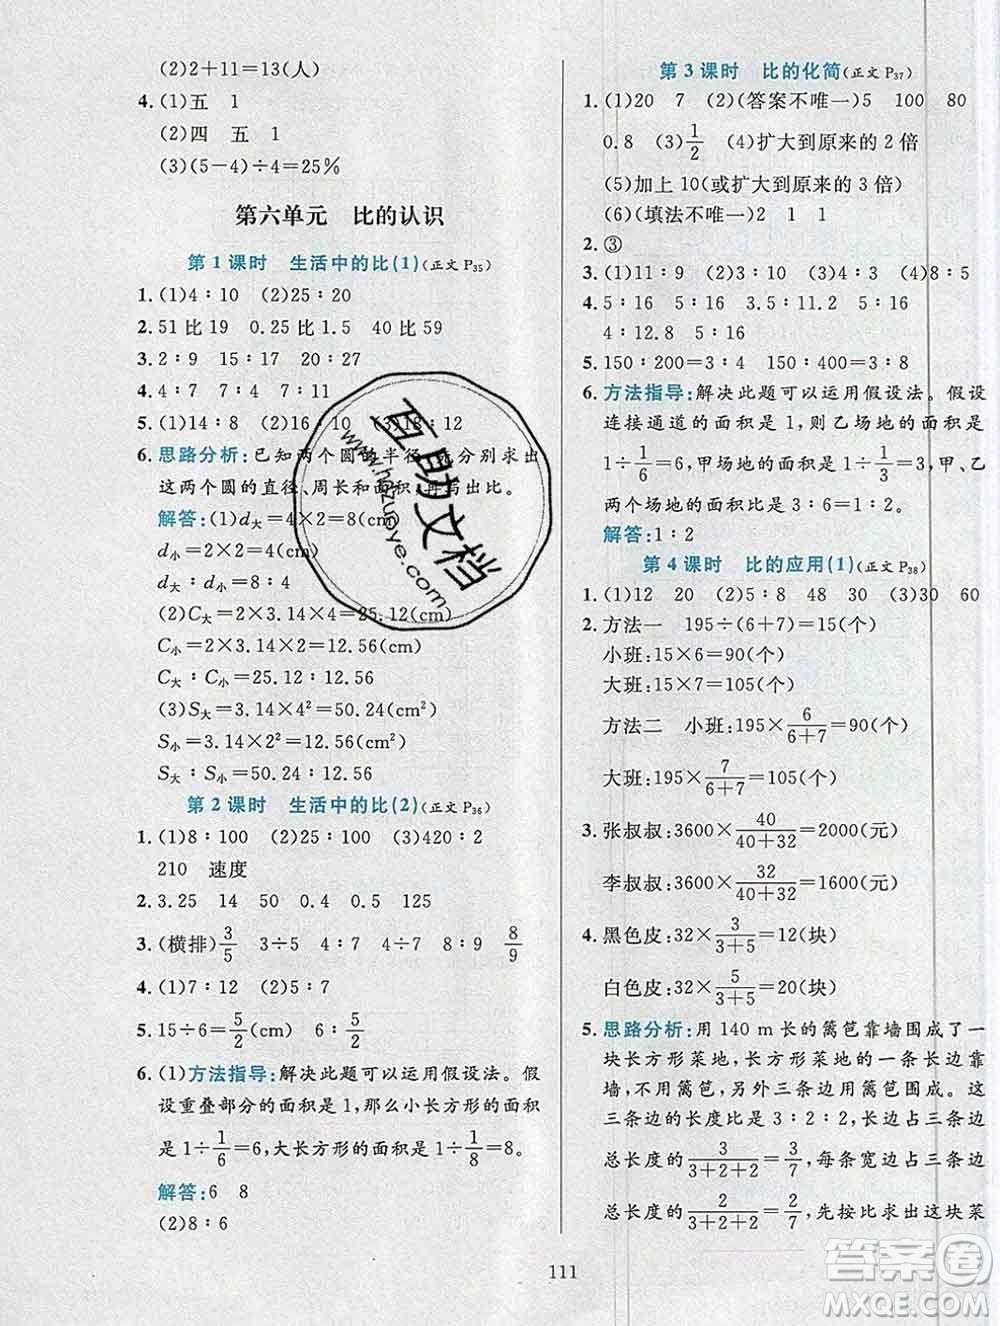 (2)2+11=13(人)
4. (1)五　1
(2)四　五　1
(3)(5-4)÷4=25%
第六单元　比的认识
第1课时　生活中的比(1)(正文P35)
1. (1)4∶10　(2)25∶20
2. 51比19　0.25比1.5　40比59
3. 2∶9　15∶17　20∶27
4. 4∶7　7∶4　7∶11
5. (1)14∶8　(2)16∶10　(3)18∶12
6. 思路分析:已知两个圆的半径,先分别求出
这两个圆的直径、周长和面积,再写出比。
解答:(1)d大=4×2=8(cm)
d小=2×2=4(cm)
d大∶d小=8∶4
(2)C大=2×3.14×4=25.12(cm)
C小=2×3.14×2=12.56(cm)
C大∶C小=25.12∶12.56
(3)S大=3.14×4²=50.24(cm²)
S小=3.14×2²=12.56(cm²)
S大∶S小=50.24∶12.56
第2课时　生活中的比(2)(正文P36)
1. (1)8∶100　(2)25∶100　(3)420∶2
210　速度
2. 3.25　14　50　0.4　0.5　125
3. (横排)3/5　3÷5　4∶7　4÷7　8∶9　8/9
4. (1)7∶12　(2)5∶7
5. 15÷6=5/2(cm)　6∶5/2
6. (1)方法指导:解决此题可以运用假设法。假
设重叠部分的面积是1,那么小长方形的面积
是1÷1/6=6,大长方形的面积是1÷1/8=8。
解答:6　8
(2)8∶6
第3课时　比的化简(正文P37)
1. (1)20　7　(2)(答案不唯一)5　100　80
0.8　(3)1/2　(4)扩大到原来的2倍
(5)加上10(或扩大到原来的3倍)
(6)(填法不唯一)2　1　1
2. ③
3. (1)11∶9　(2)3∶2　(3)4∶9　(4)8∶5
4. 5∶16　3∶11　3.5∶11.2　5∶16
4∶12.8　5∶16
5. 150∶200=3∶4　150∶400=3∶8
6. 方法指导:解决此题可以运用假设法。假设
连接通道的面积是1,则乙场地的面积是
1÷1/6=6,甲场地的面积是1÷1/3=3,甲、乙
两个场地的面积比是3∶6=1∶2。
解答:1∶2
第4课时　比的应用(1)(正文P38)
1. (1)12　20　(2)5∶8　48　30　(3)30　60
2. 方法一　195÷(6+7)=15(个)
小班:15×6=90(个)
大班:15×7=105(个)
方法二　小班:195×6/(6+7)=90(个)
大班:195×7/(6+7)=105(个)
3. 张叔叔:3600×40/(40+32)=2000(元)
李叔叔:3600×32/(40+32)=1600(元)
4. 黑色皮:32×3/(3+5)=12(块)
白色皮:32×5/(3+5)=20(块)
5. 思路分析:用140 m长的篱笆靠墙围成了一
块长方形菜地,长方形菜地的一条长边靠
墙,不用篱笆,另外三条边用篱笆围成。这
三条边的长度比是3∶2∶2,长边占三条边
总长度的3/(3+2+2)=3/7,每条宽边占三条边
总长度的2/(3+2+2)=2/7,先按比求出这块菜
111
互助文档
www.hazuoye.com
答案圈
MXQE.COM